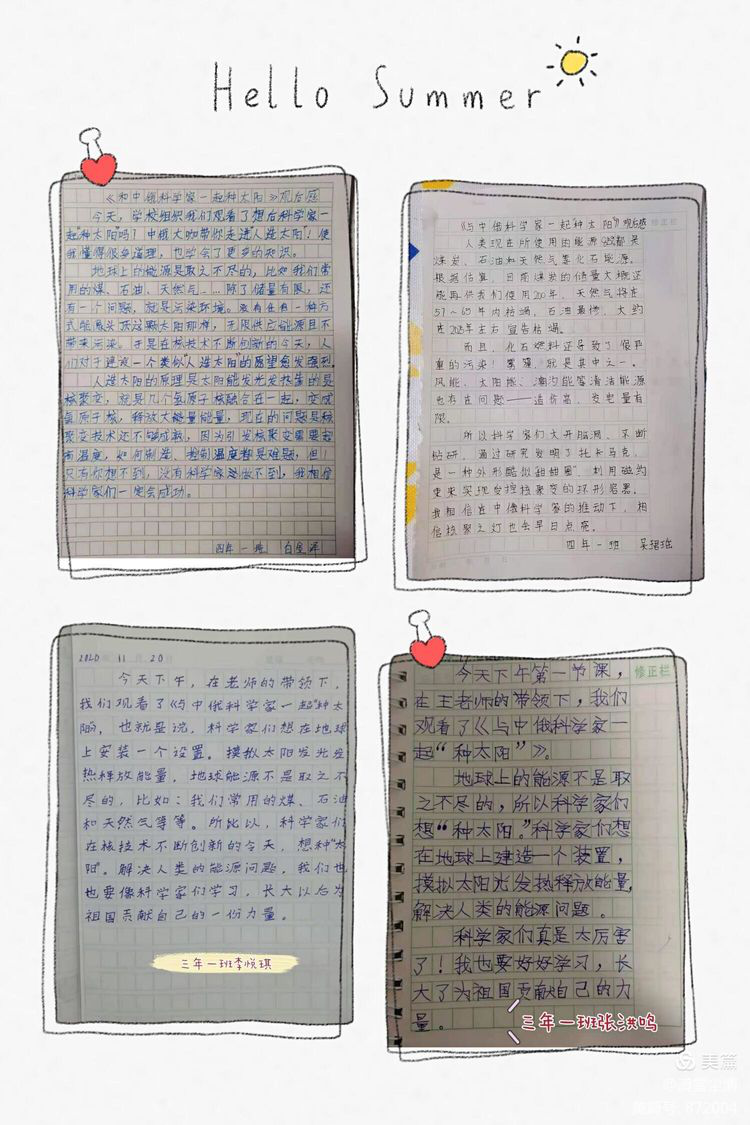 Hello Summer
《和中俄科学家一起种太阳》观后感
今天，学校组织我们观看了想后科学家一
起“种太阳吗！中俄大咖带你走进人造太阳”！使
我懂得很多道理，也学会了更多的知识。
地球上的能源是取之不尽的，比如我们常
用的煤、石油、天然气……除了储量有限，还
有一个问题，就是污染环境。没有任有一种方
式能像头顶这颗太阳那样，无限供应能源且不
带来污染。于是在核技术不断创新的今天，人
们对于建设一个类似“人造太阳”的愿望愈发强烈。
人造太阳的原理是太阳能发光发热靠的是
核聚变，就是几个氢原子核融合在一起，变成
氦原子核，释放大量能量，现在的问题是核
聚变技术还不够成熟，因为引发核聚变需要
有温度，如何制造、控制温度都是难题，但！
只有你想不到，没有科学家做不到，我相信
科学家们一定会成功。
四年一班 白
《与中俄科学家一起种太阳》观后感
修正栏
人类现在所使用的能源都是
煤炭、石油和天然气等化石能源。
根据估算，目前煤炭的储量大概还
能再供我们使用200年，天然气将在
57～65年内枯竭，石油最惨，大约
在2050年左右宣告枯竭。
而且，化石燃料还导致了很严
重的污染！雾霾，就是其中之一。
风能、太阳能、潮汐能等清洁能源
也存在问题——造价高、发电量有
限。
所以科学家们大开脑洞、不断
钻研，通过研究发明了托卡马克，
是一种外形酷似甜甜圈，利用磁约
束来实现受控核聚变的环形容器。
我相信在中俄科学家的推动下，相
信核聚之灯也会早日点亮。
四年一班 吴珺
2020 11 20
今天下午，在老师的带领下，
我们观看了《与中俄科学家一起“种太
阳》，也就是说，科学家们想在地球
上安装一个设置。摸拟太阳发光发
热释放能量，地球能源不是取之不
尽的，比如：我们常用的煤、石油
和天然气等等。所比以，科学家们
在核技术不断创新的今天，想种“太
阳”。解决人类的能源问题，我们也
也要像科学家们学习，长大以后为
祖国贡献自己的一份力量。
三年一班李悦琪
今天下午第一节课，
修正栏
在王老师的带领下，我们
观看了《与中俄科学家一
起“种太阳”》。
地球上的能源不是取
之不尽的，所以科学家们
想“种太阳。”科学家们想
在地球上建造一个装置，
摸拟太阳光发热释放能量，
解决人类的能源问题。
科学家们真是太厉害
了！我也要好好学习，长
大了为祖国贡献自己的力
量。
三年一班张洪鸣
美篇
872004